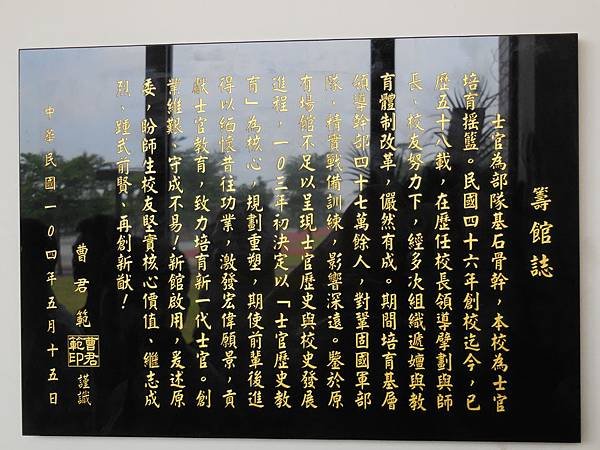 籌館誌
士官為部隊基石骨幹，本校為士官
培育搖籃。民國四十六年創校迄今，已
歷五十八載，在歷任校長領導擘劃與師
長、校友努力下，經多次組織遞嬗與教
育體制改革，儼然有成。期間培育基層
領導幹部四十七萬餘人，對鞏固國軍部
隊，精實戰備訓練，影響深遠。鑒於原
有場館不足以呈現士官歷史與校史發展
進程，一０三年初決定以「士官歷史教
育」為核心，規劃重塑，期使前輩後進
得以緬懷昔往功業，激發宏偉願景，貢
獻士官教育，致力培育新一代士官。創
業維艱、守成不易！新館啟用，爰述原
委，盼師生校友堅實核心價值、繼志成
烈、踵式前賢、再創新猷！
曹君範 曹君範印 謹識
中華民國一０四年五月十五日